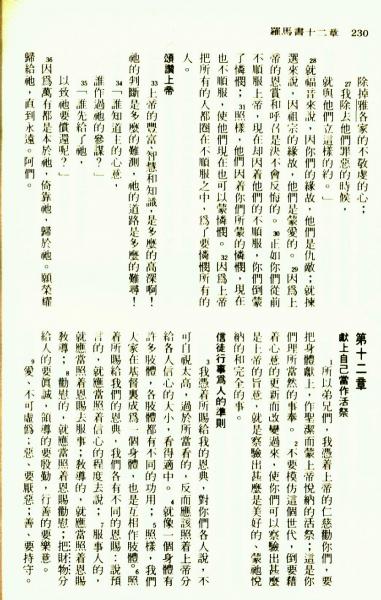 羅馬書十二章　230
除掉雅各家的不敬虔的心；
27我除去他們罪惡的時候，
就與他們立這樣的約。」
28就福音來說，因你們的緣故，他們是仇敵；就揀
選來說，因祖宗的緣故，他們是蒙愛的。29因爲上
帝的恩賞和呼召是決不會反悔的。30正如你們從前
不順服上帝，現在却因着他們的不順服，你們倒蒙
了憐憫；31照樣，他們因着你們所蒙的憐憫，現在
也不順服，使他們現在也可以蒙憐憫。32因爲上帝
把所有的人都圈在不順服之中，爲了要憐憫所有的
人。
頌讚上帝
33上帝的豐富、智慧和知識，是多麼的高深啊！
祂的判斷是多麼的難測，祂的道路是多麼的難尋！
34「誰知道主的心意，
誰作過祂的參謀？」
35「誰先給了祂，
以致祂要償還呢？」
36因爲萬有都是本於祂，倚靠祂，歸於祂。願榮耀
歸給祂，直到永遠。阿們。
第十二章
獻上自己當作活祭
1所以弟兄們，我憑着上帝的仁慈勸你們，要
把身體獻上，作聖潔而蒙上帝悅納的活祭；這是你
們理所當然的事奉。2不要模仿這個世代，倒要藉
着心意的更新而改變過來，使你們可以察驗出甚麼
是上帝的旨意，就是察驗出甚麼是美好的、蒙祂悅
納的和完全的事。
信徒行事爲人的準則
3我憑着所賜給我的恩典，對你們各人說，不
可自視太高，過於所當看的，反而應該照着上帝分
給各人信心的大小，看得適中。4就像一個身體有
許多肢體，各肢體都有不同的功用；5照樣，我們
大家在基督裏成爲一個身體，也是互相作肢體。6照
着所賜給我們的恩典，我們各有不同的恩賜：說預
言的，就應當照着信心的程度去說；7服事人的，
就應當照着恩賜去服事；敎導的，就應當照着恩賜
敎導；8勸慰的，就應當照着恩賜勸慰；把財物分
給人的要眞誠，領導的要殷勤，行善的要樂意。
9愛，不可虛僞；惡，要厭惡；善，要持守。